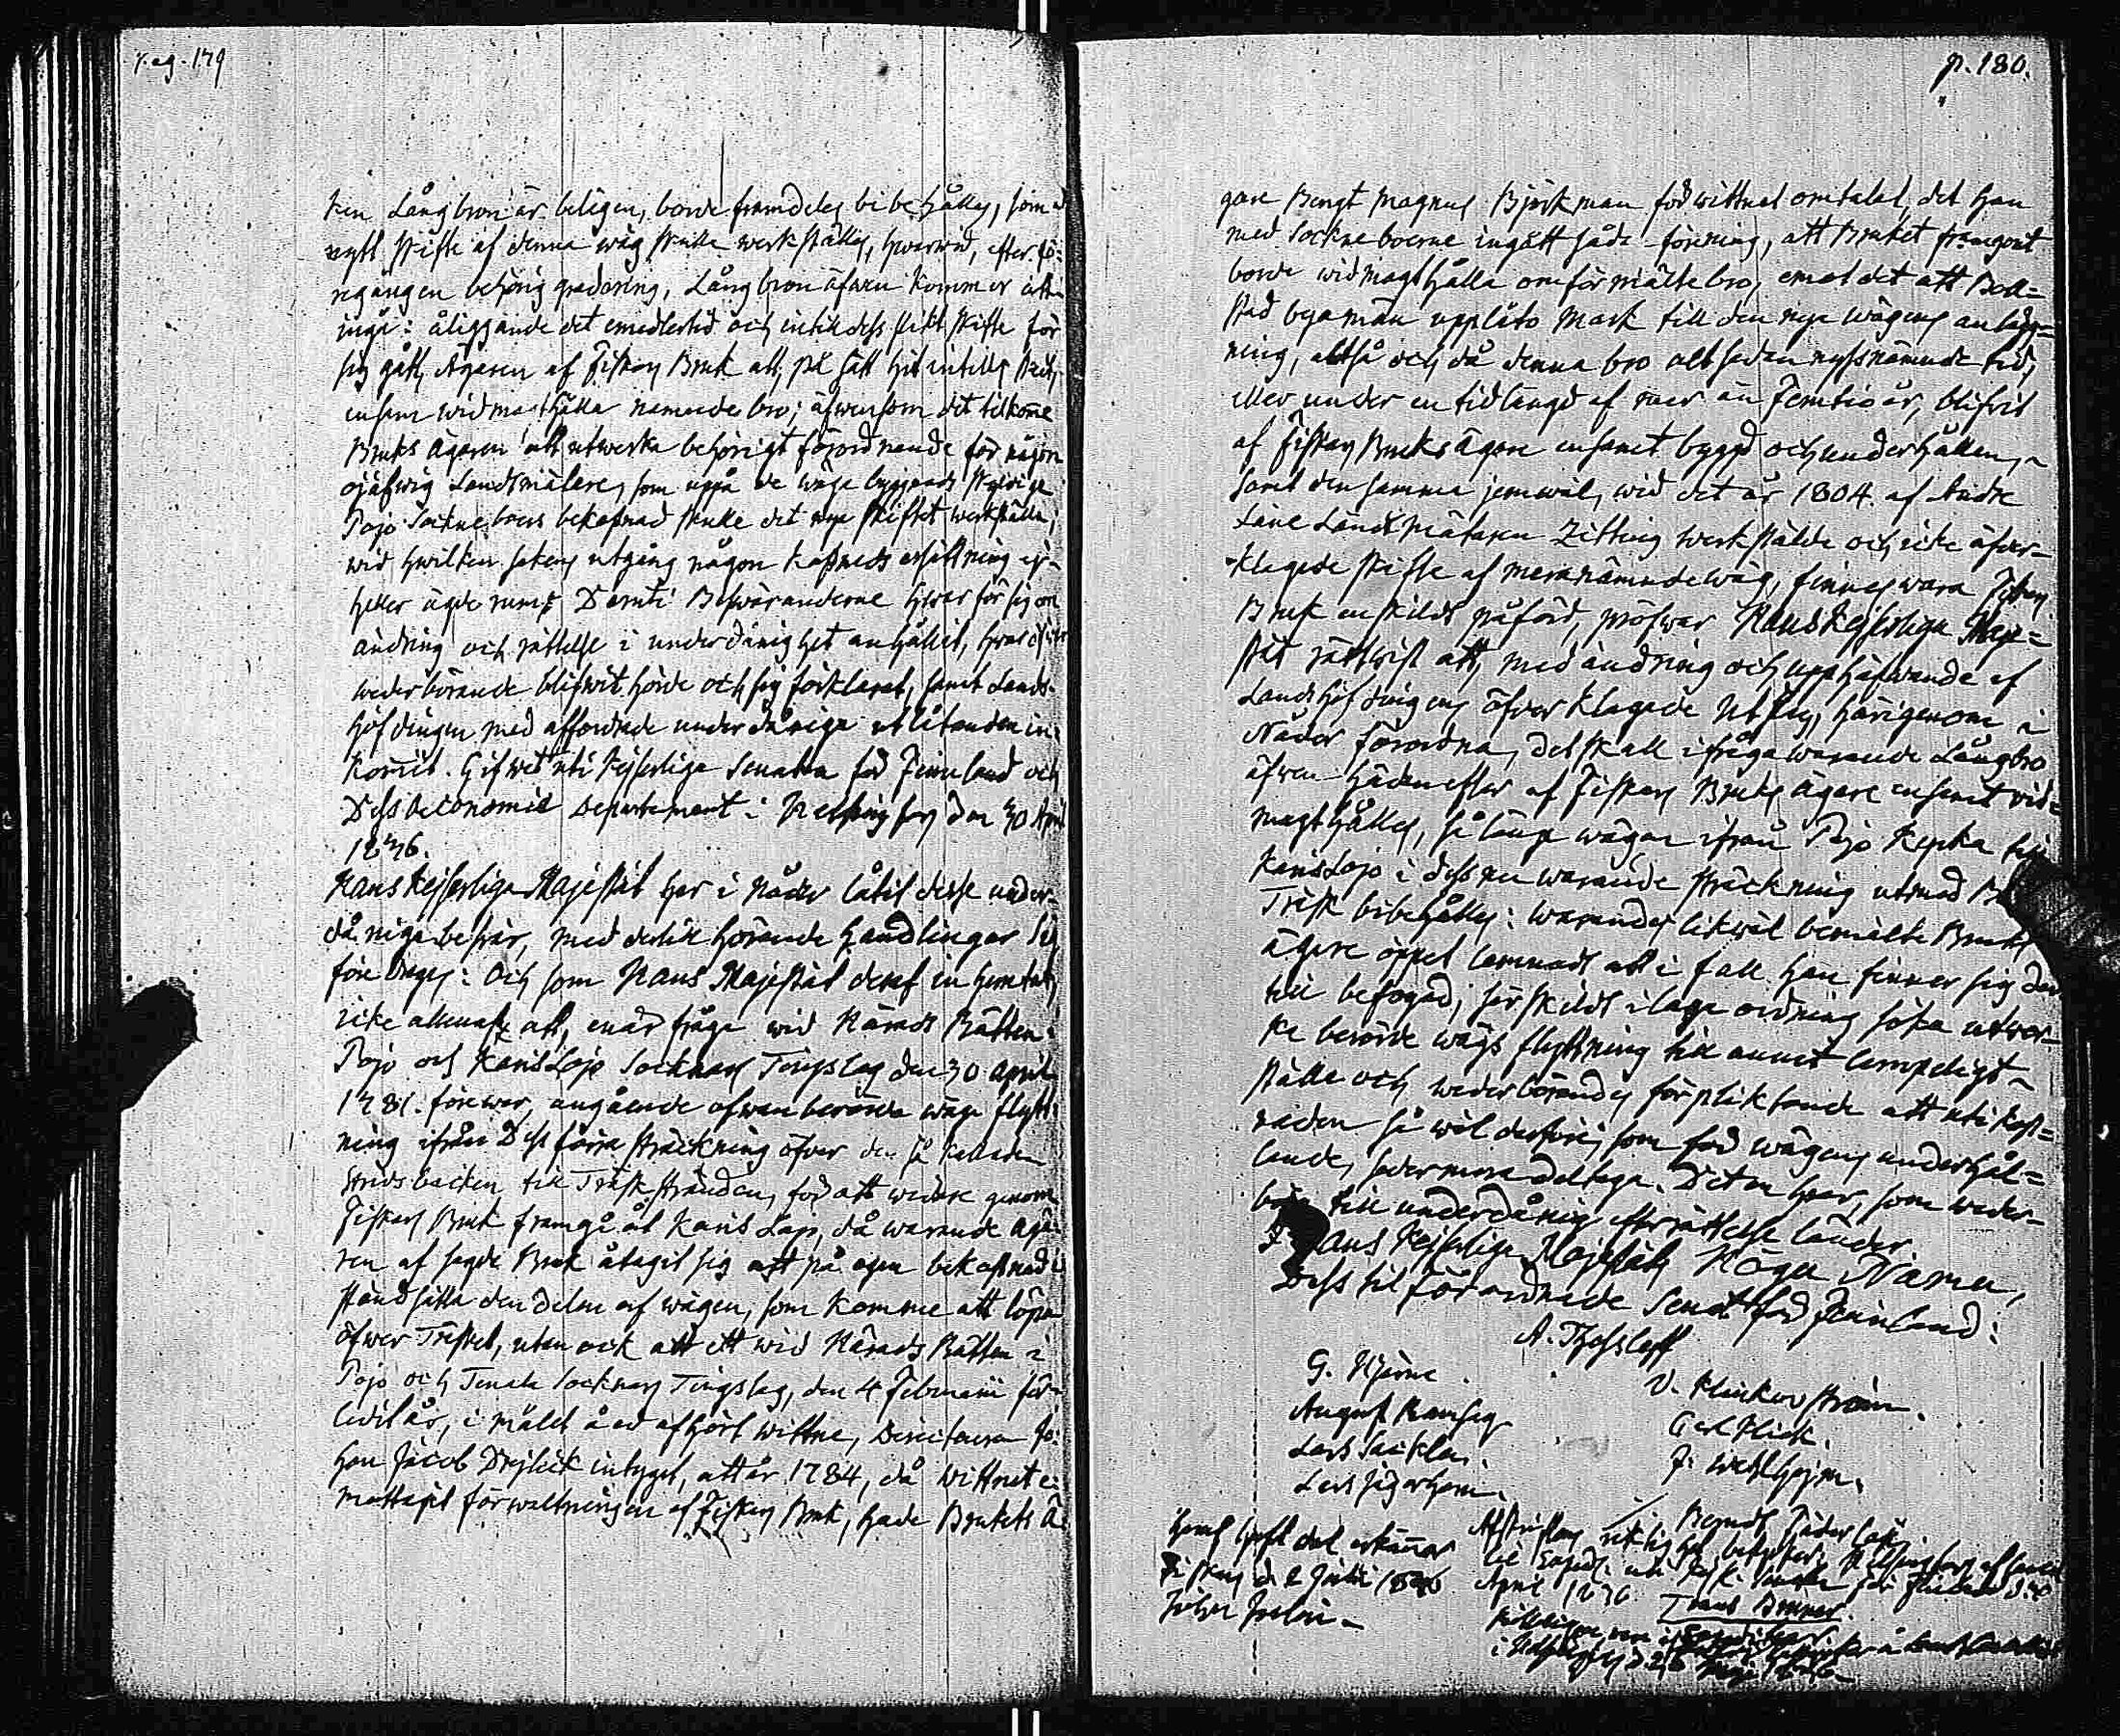 pag. 179
ken Långbron är belägen, borde framdeles bibehållas, som ett
nytt skifte af denna wäg skulle werkställas, hwarwid, efter fö-
regången behörig gradering, Långbron äfwen kommer att
ingå: åliggande det emedlertid och intill dess slikt skifte för
sig gått, Ägaren af Fiskars Bruk att, på sätt hitintills skett,
ensam widmakthålla nämnde bro; äfwensom det tillkomme
Bruks Ägaren att utwerka behörigt förordnande för någon
ojäfwig Landtmätare, som uppå de wägabyggnads skyldige
Pojo Sockneboers bekostnad skulle det nya skiftet werkställa,
wid hwilken sakens utgång någon kostnads ersättning ej
heller ägde rum; Deruti Beswäranderne hwar för sig om
ändring och rättelse i underdånighet anhållit, hwaröfwer
wederbörande blifwit hörde och sig förklarat, samt Lands-
höfdingen med affordrade underdåniga utlåtanden in-
kommit. Gifwet uti Kejserliga Senaten för Finnland och
Dess Oeconomie Departement i Helsingfors den 30 April
1836.
Hans Kejserliga Majestät har i Nåder låtit desse under-
dåniga beswär, med dertill hörande handlingar Sig
föredragas: Och som Hans Majestät deraf inhemtat,
icke allenast att, enär fråga wid Härads Rätten i
Pojo och Karislojo Socknars Tingslag den 30 April
1781. förewar, angående ofwanberörde wägs flytt-
ning ifrån Dess förra sträckning öfwer den så kallade
backen till Träskstranden, för att widare genom
Fiskars Bruk framgå åt Karis Lojo, då warande Äga-
ren af sagde Bruk åtagit sig att på egen bekostnad i
ståndsätta den delen af wägen, som komme att löpa
öfwer Träsket, utan ock att ett wid Härads Rätten i
Pojo och Tenala Socknars Tingslag, den 4 Februarii för-
lidit år, i målet å ed afhört wittne, Directeuren Jo-
han Jacob Dreilick intygat, att år 1784, då wittnet e-
mottagit förwaltningen af Fiskars Bruk, hade Brukets Ä-
p. 180.
gare Bengt Magnus Björkman för wittnet omtalat, det han
med Sockneboerne ingått sådan förening, att Bruket framgent
borde widmagthålla omförmälte bro, emot det att Boll-
stad byamän uppläto mark till den nya wägens anlägg-
ning, altså och då denna bro alt sedan nyssnämnde tid,
eller under en tidlängd af mer än Femtio år, blifwit
af Fiskars Bruks Ägare ensamt byggd och underhållen,
samt densamma jemwäl, wid det år 1804 af Andre
Läne Landtmätaren Zitting werkstälde och icke öfwer-
klagade skifte af meranämnde wäg, finnes wara Fiskars
Bruk enskildt påförd, pröfwar Hans Kejserliga Maje-
stät rättwist att, med ändring och upphäfwande af
Landshöfdingens öfwerklagade Utslag, härigenom i
Nåder förordna, det skall ifrågawarande Långbro
äfwen hädanefter af Fiskars Bruks Ägare ensamt wid-
magthållas, så länge wägen ifrån Pojo Kyrka till
Karislojo i dess nu warande sträckning utmed
Träsk bibehålles: warandes likwäl bemälte Bruks
ägare öppet lemnadt att i fall han finner sig der
till befogad, särskildt i laga ordning söka utwer-
ka berörde wägs flyttning till annat lämpeligt
ställe och wederbörandes förpliktande att uti kost-
naden så wäl derföre, som för wägens underhål-
lande, sedermera deltaga. Det en hwar, som weder-
bör till underdånig efterrättelse länder.
I Hans Kejserliga Majestäts Höga Namn,
Dess tillförordnade Senat för Finland:
A. Thesleff
G. Hjärne.
V. Klinckowström.
August Ramsay
Carl Flick.
Lars Sacklen.
J. Walleen.
Lars Jägerhorn.
Afskriftens riktighet betyger, Helsingfors
April 1836
Frans Brunér.
Fiskars d. 2 Junii 1836
Johan